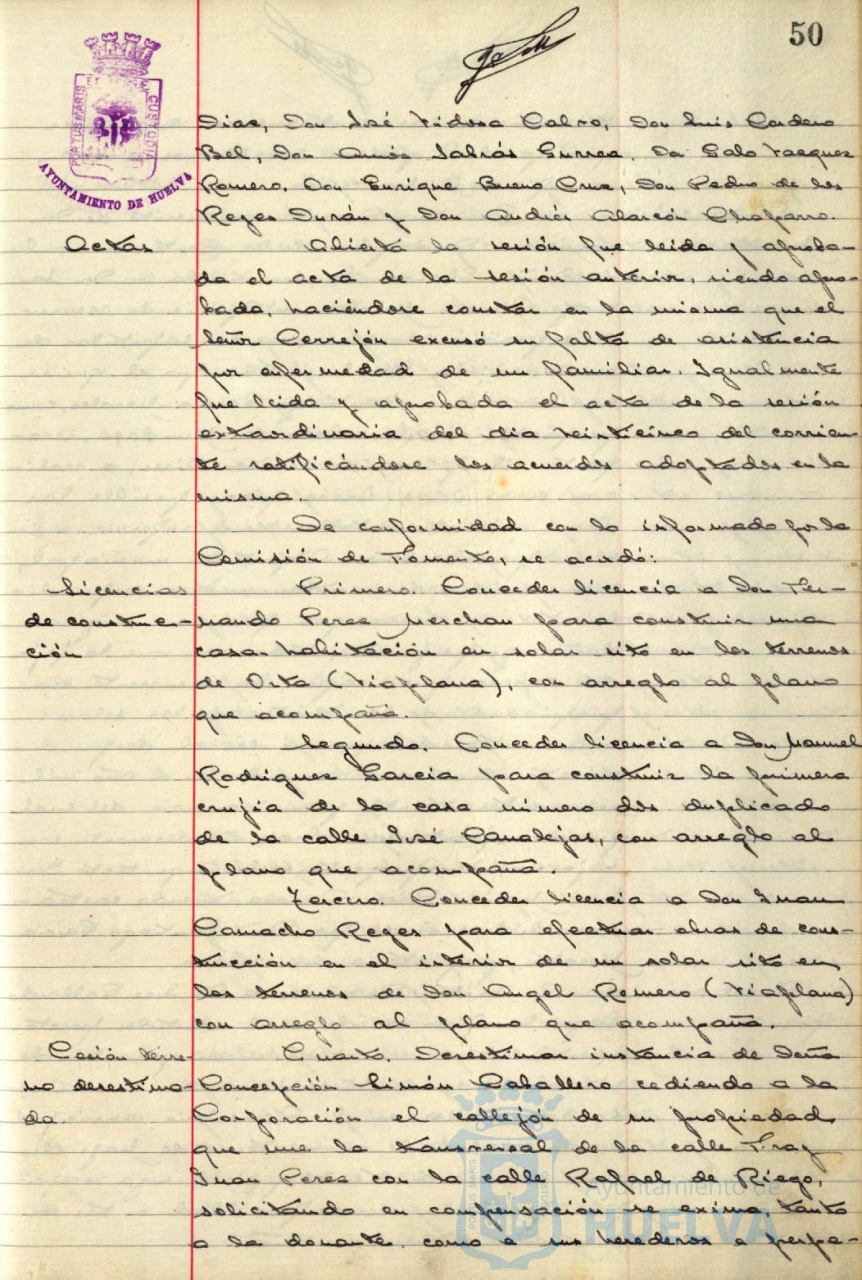 50
PORTUS MARIS ET CUSTODIA
AYUNTAMIENTO DE HUELVA
Dias, Don José Vidosa Calvo, Don Luis Cordero
Bel, Don Amós Sabrás Gurrea, Don Galo Vazquez
Romero, Don Enrique Bueno Cruz, Don Pedro de los
Reyes Durán y Don Andrés Alarcón Chaparro.
Actas
Abierta la sesión fue leida y aproba-
da el acta de la sesión anterior, siendo apro-
bada, haciéndose constar en la misma que el
Señor Cerrejón excusó su falta de asistencia
por enfermedad de un familiar. Igualmente
fue leida y aprobada el acta de la sesión
extraordinaria del dia veinticinco del corrien-
te ratificándose los acuerdos adoptados en la
misma.
De conformidad con lo informado por la
Comisión de Fomento, se acordó:
Licencias
de construc-
ción
Primero. Conceder licencia a Don Fer-
nando Perez Merchan para construir una
casa-habitación en solar sito en los terrenos
de Orta (Viaplana), con arreglo al plano
que acompaña.
Segundo. Conceder licencia a Don Manuel
Rodriguez Garcia para construir la primera
crujia de la casa número dos duplicado
de la calle José Canalejas, con arreglo al
plano que acompaña.
Tercero. Conceder licencia a Don Juan
Camacho Reyes para efectuar obras de cons-
trucción en el interior de un solar sito en
los terrenos de Don Angel Romero (Viaplana)
con arreglo al plano que acompaña.
Cesión terre-
no desestima-
da.
Cuarto. Desestimar instancia de Doña
Concepción Limón Caballero cediendo a la
Corporación el callejón de su propiedad
que une la transversal de la calle Fray
Juan Perez con la calle Rafael de Riego,
solicitando en compensación se exima, tanto
a la donante, como a sus herederos a perpe-
Ayuntamiento de
HUELVA